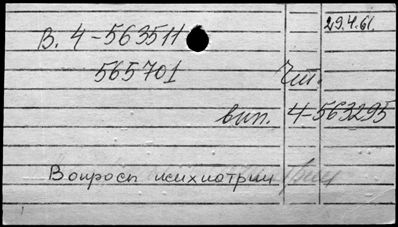 29.4.61.
В. 4-563511
565701 Чит.
вып. 4-563295
Вопросы психиатрии